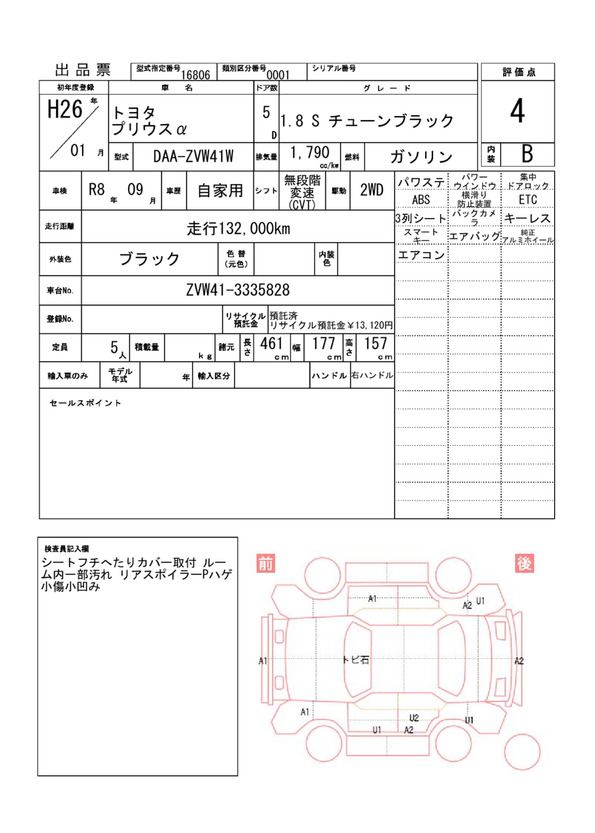 出品票
型式指定番号 16806 類別区分番号 0001 シリアル番号
評価点
4
内装 B
初年度登録 車名 ドア数 グレード
H26年 / 01月
トヨタ
プリウスα
5D
1.8 S チューンブラック
型式 DAA-ZVW41W 排気量 1,790 cc/kw 燃料 ガソリン
車検 R8年 09月 車歴 自家用 シフト 無段階変速(CVT) 駆動 2WD
走行距離 走行132,000km
外装色 ブラック 色替(元色) 内装色
車台No. ZVW41-3335828
登録No. リサイクル預託金 預託済
リサイクル預託金¥13,120円
定員 5人 積載量 kg 諸元 長さ 461cm 幅 177cm 高さ 157cm
輸入車のみ モデル年式 年 輸入区分 ハンドル 右ハンドル
パワステ パワーウインドウ 集中ドアロック
ABS 横滑り防止装置 ETC
3列シート バックカメラ キーレス
スマートキー エアバッグ 純正アルミホイール
エアコン
セールスポイント
検査員記入欄
シートフチへたりカバー取付 ルー
ム内一部汚れ リアスポイラーPハゲ
小傷小凹み
前 後
A1 A2 U1
A1 トビ石 A2
A1 U2 U1
U1 A2